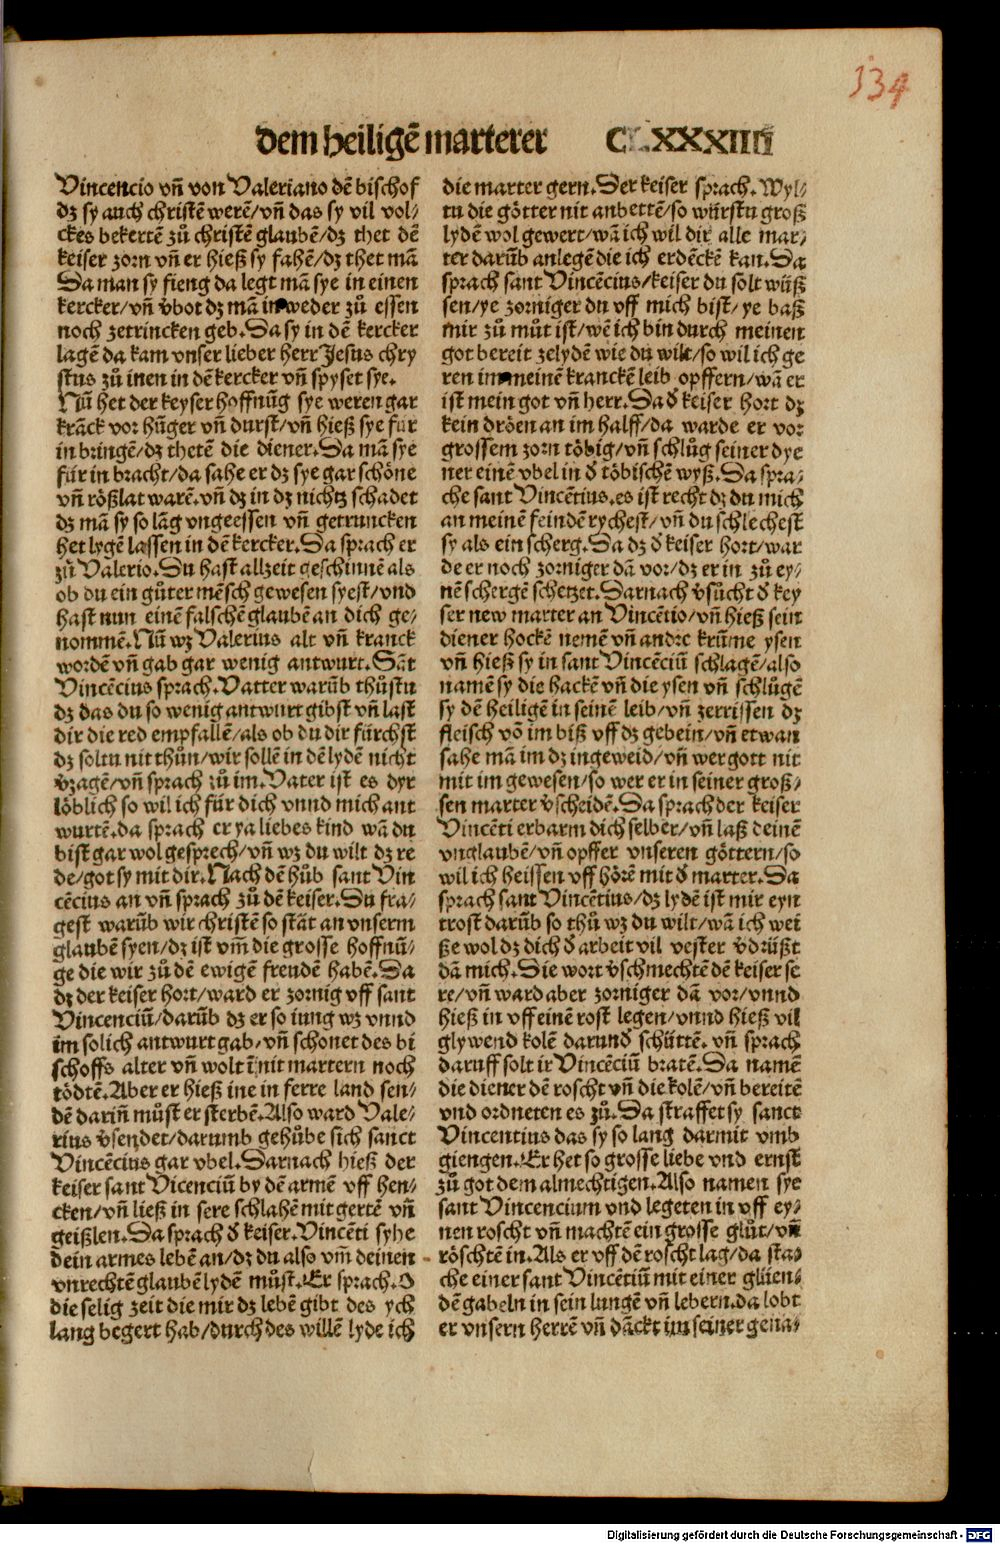 134
dem heiligẽ marterer CLXXXIIII
Vincencio vñ von Valeriano dẽ bischof
dz sy auch christẽ werẽ/vñ das sy vil vol⸗
ckes bekertẽ zů christẽ glaubẽ/dz thet dẽ
keiser zorn vñ er hieß sy fahẽ/dz thet mã
Da man sy fieng da legt mã sye in einen
kercker/vñ v̈bot dz mã in weder zů essen
noch zetrincken geb. Da sy in dẽ kercker
lagẽ da kam vnser lieber herr Jesus chry
stus zů inen in dẽ kercker vñ spyset sye.
Nũ het der keyser hoffnũg sye weren gar
krãck vor hũger vñ durst/vñ hieß sye für
in bringẽ/dz thetẽ die diener. Da mã sye
für in bracht/da sahe er dz sye gar schöne
vñ rößlat warẽ. vñ dz in dz nichtz schadet
dz mã sy so lãg vngeessen vñ getruncken
het lygẽ lassen in dẽ kercker. Da sprach er
zů Valerio. Du hast allzeit geschinnẽ als
ob du ein gůter mẽsch gewesen syest/vnd
hast nun einẽ falschẽ glaubẽ an dich ge⸗
nommẽ. Nũ wz Valerius alt vñ kranck
wordẽ vñ gab gar wenig antwurt. Sãt
Vincẽcius sprach. Vatter warũb thůstu
dz das du so wenig antwurt gibst vñ last
dir die red empfallẽ/als ob du dir fürchst
dz soltu nit thůn/wir sollẽ in dẽ lydẽ nicht
v̈zagẽ/vñ sprach zů im. Vater ist es dyr
löblich so wil ich für dich vnnd mich ant
wurtẽ. da sprach er ya liebes kind wã du
bist gar wol gesprech/vñ wz du wilt dz re
de/got sy mit dir. Nach dẽ hůb sant Vin
cẽcius an vñ sprach zů dẽ keiser. Du fra⸗
gest warũb wir christẽ so stät an vnserm
glaubẽ syen/dz ist vm̃ die grosse hoffnũ⸗
ge die wir zů dẽ ewigẽ freudẽ habẽ. Da
dz der keiser hort/ward er zornig vff sant
Vincenciũ/darũb dz er so iung wz vnnd
im solich antwurt gab/vñ schonet des bi
schoffs alter vñ wolt ĩ nit martern noch
tödtẽ. Aber er hieß ine in ferre land sen⸗
dẽ dariñ můst er sterbẽ. Also ward Vale⸗
rius v̈sendet/darumb gehůbe sich sanct
Vincẽcius gar vbel. Darnach hieß der
keiser sant Vicenciũ by dẽ armẽ vff hen⸗
cken/vñ ließ in sere schlahẽ mit gertẽ vñ
geißlen. Da sprach d̾ keiser. Vincẽti syhe
dein armes lebẽ an/dz du also vm̃ deinen
vnrechtẽ glaubẽ lydẽ můst. Er sprach. O
die selig zeit die mir dz lebẽ gibt des ych
lang begert hab/durch des willẽ lyde ich
die marter gern. Der keiser sprach. Wyl⸗
tu die götter nit anbettẽ/so würstu groß
lydẽ wol gewert/wã ich wil dir alle mar⸗
ter darũb anlegẽ die ich erdẽckẽ kan. Da
sprach sant Vincẽcius/keiser du solt wüß
sen/ye zorniger du vff mich bist/ye baß
mir zů můt ist/wẽ ich bin durch meinen
got bereit zelydẽ wie du wilt/so wil ich ge
ren im meinẽ kranckẽ leib opffern/wã er
ist mein got vñ herr. Da d̾ keiser hort dz
kein dröen an im halff/da warde er vor
grossem zorn töbig/vñ schlůg seiner dye
ner einẽ vbel in d̾ töbischẽ wyß. Da spra⸗
che sant Vincẽtius. es ist recht dz du mich
an meinẽ feindẽ rychest/vñ du schlechest
sy als ein scherg. Da dz d̾ keiser hort/war
de er noch zorniger dã vor/dz er in zů ey⸗
nẽ schergẽ schetzet. Darnach v̈sůcht d̾ key
ser new marter an Vincẽtio/vñ hieß sein
diener hockẽ nemẽ vñ andre krũme ysen
vñ hieß sy in sant Vincẽciũ schlagẽ/also
namẽ sy die hackẽ vñ die ysen vñ schlůgẽ
sy dẽ heiligẽ in seinẽ leib/vñ zerrissen dz
fleisch võ im biß vff dz gebein/vñ etwan
sahe mã im dz ingeweid/vñ wer gott nit
mit im gewesen/so wer er in seiner groß⸗
sen marter v̈scheidẽ. Da sprach der keiser
Vincẽti erbarm dich selber/vñ laß deinẽ
vnglaubẽ/vñ opffer vnseren göttern/so
wil ich heissen vff hörẽ mit d̾ marter. Da
sprach sant Vincẽtius/dz lydẽ ist mir eyn
trost darũb so thů wz du wilt/wã ich wei
ße wol dz dich d̾ arbeit vil vester v̈drüßt
dã mich. Die wort v̈schmechtẽ dẽ keiser se
re/vñ ward aber zorniger dã vor/vnnd
hieß in vff einẽ rost legen/vnnd hieß vil
glywend kolẽ darund̾ schüttẽ. vñ sprach
daruff solt ir Vincẽciũ bratẽ. Da namẽ
die diener dẽ roscht vñ die kolẽ/vñ bereitẽ
vnd ordneten es zů. Da straffet sy sanct
Vincentius das sy so lang darmit vmb
giengen. Er het so grosse liebe vnd ernst
zů got dem almechtigen. Also namen sye
sant Vincencium vnd legeten in vff ey⸗
nen roscht vñ machtẽ ein grosse glůt/vñ
röschtẽ in. Als er vff dẽ roscht lag/da sta⸗
che einer sant Vincẽtiũ mit einer glüen⸗
dẽ gabeln in sein lungẽ vñ lebern. da lobt
er vnsern herrẽ vñ dãckt im seiner gena⸗
Digitalisierung gefördert durch die Deutsche Forschungsgemeinschaft - DFG